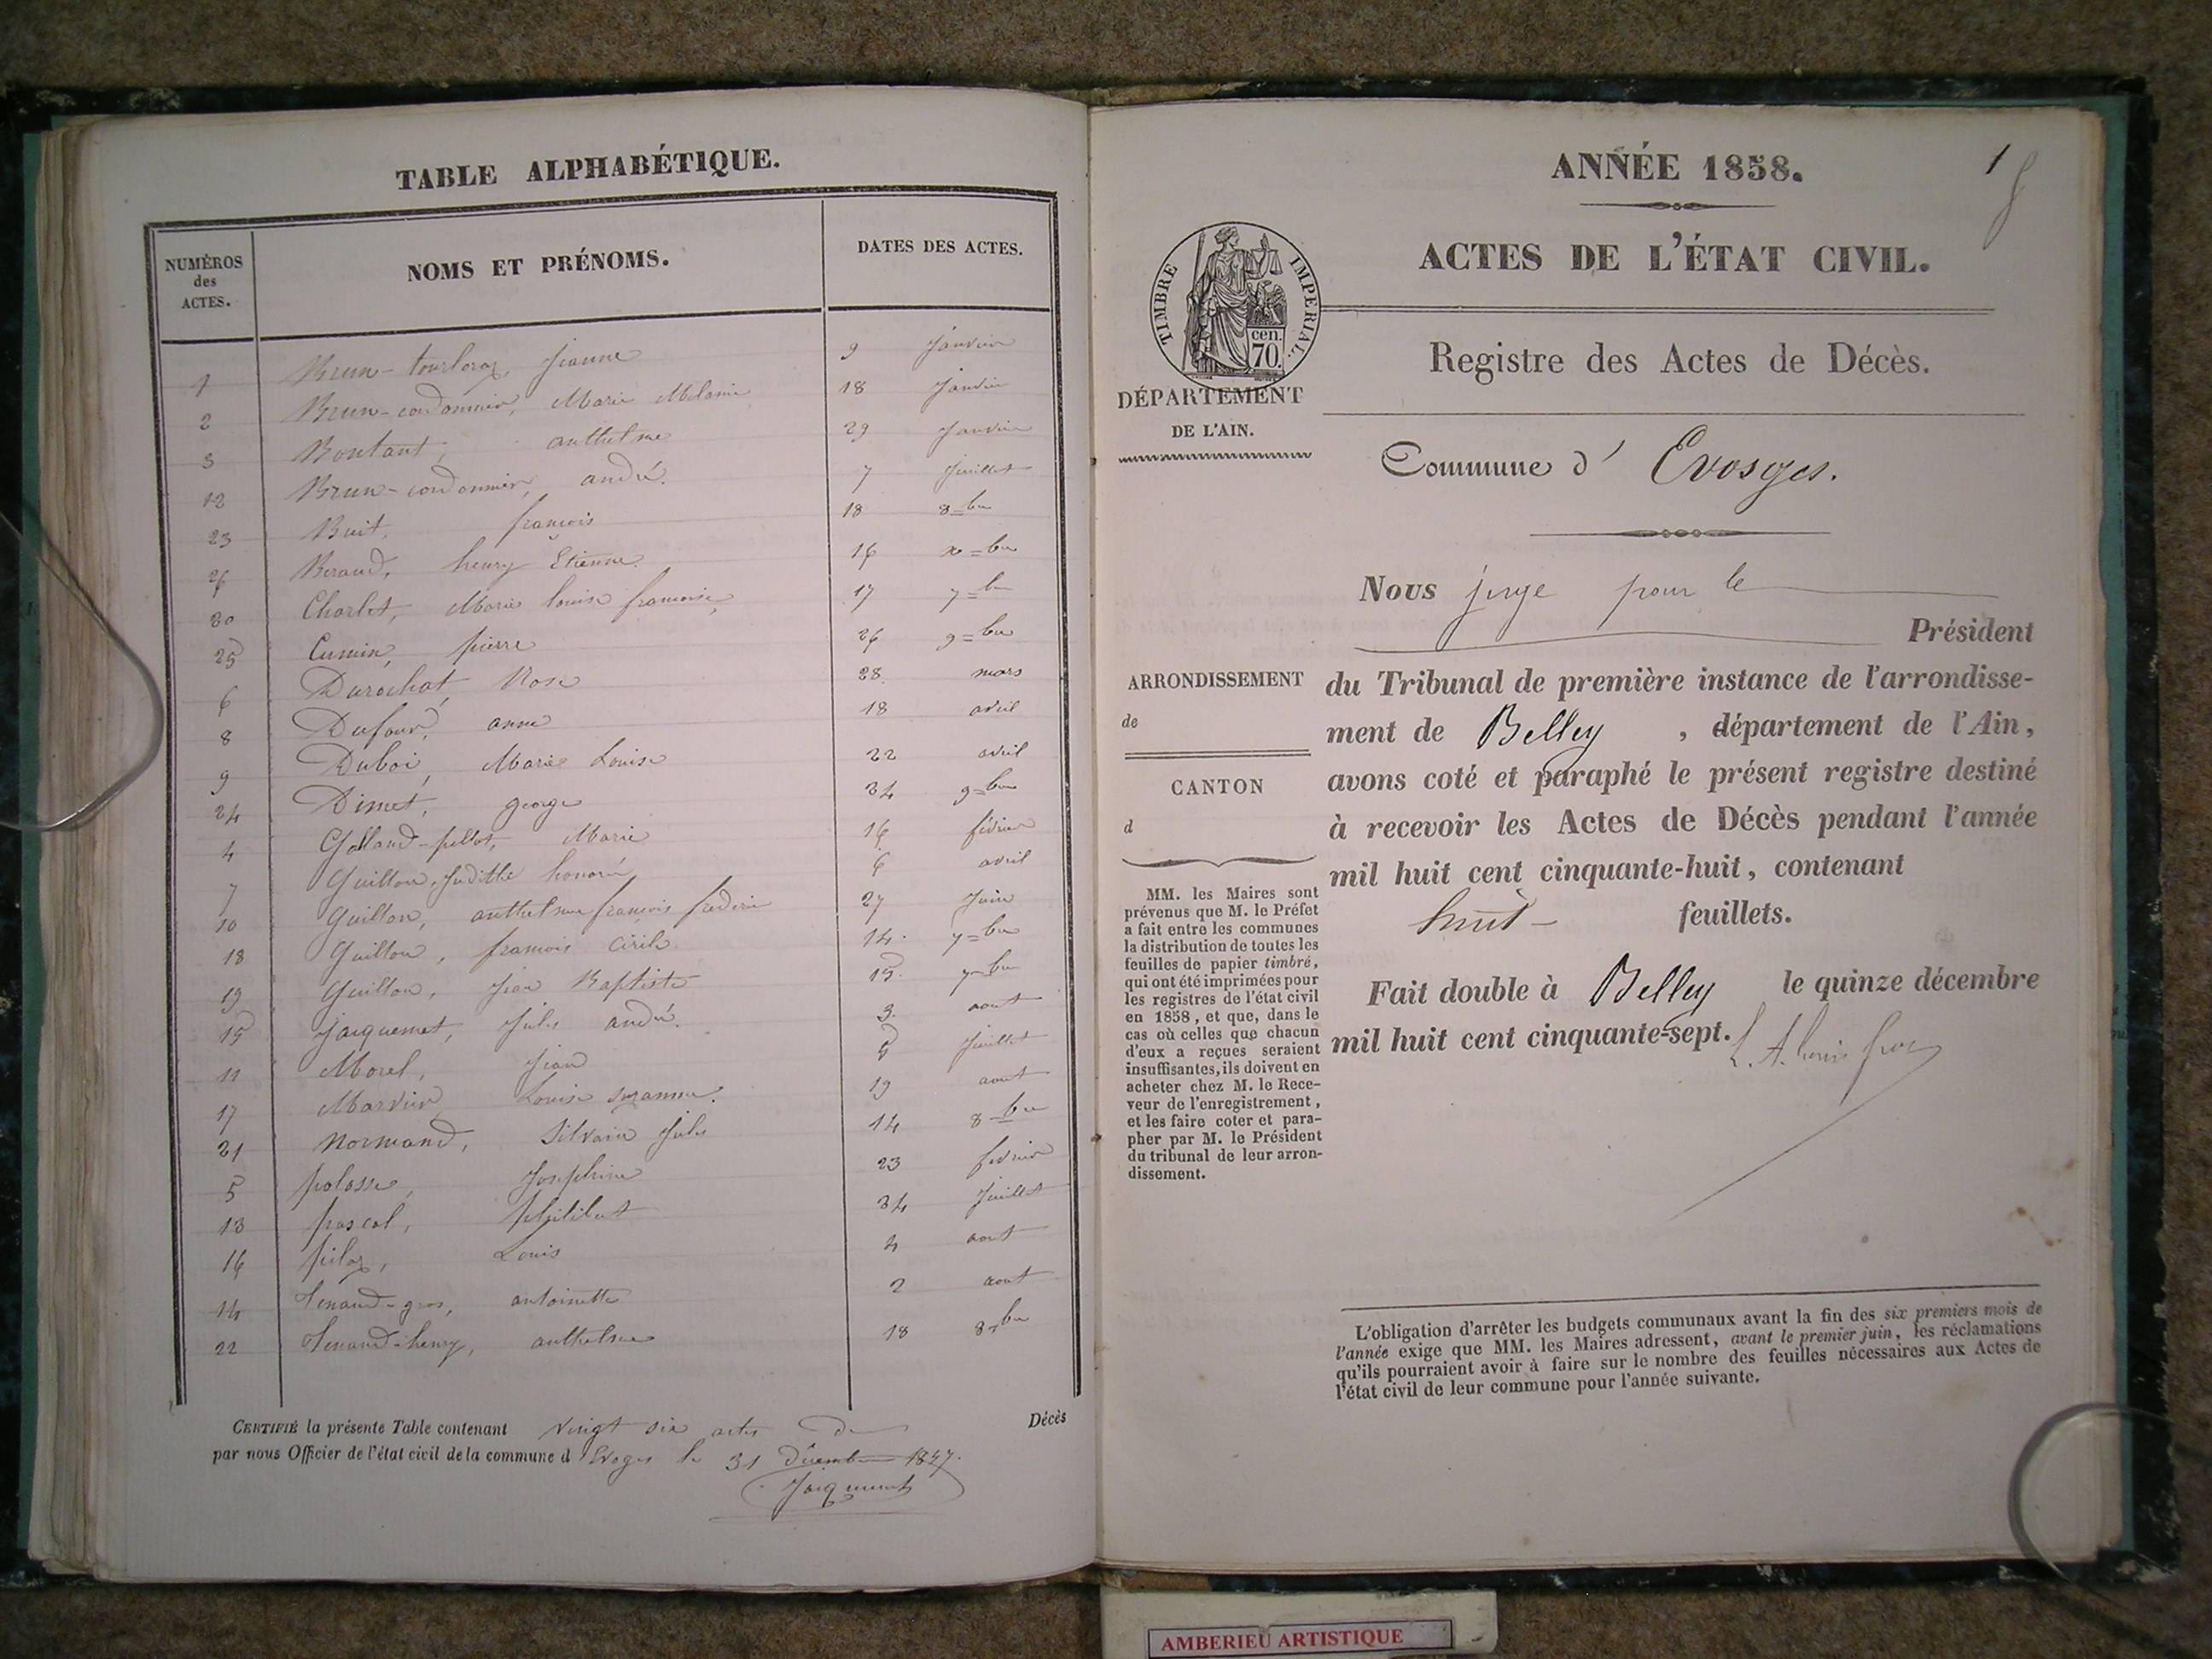 TABLE ALPHABÉTIQUE.
NUMÉROS des ACTES. NOMS ET PRÉNOMS. DATES DES ACTES.
1 Brun-tourloraz, Jeanne 9 Janvier
2 Brun-cordonnier, Marie Melanie 18 Janvier
3 Bontant, anthelme 29 Janvier
12 Brun-cordonnier, andré. 7 Juillet
23 Buit, francois 18 8=bre
26 Beraud, henry Etienne. 16 x=bre
20 Charlet, Marie louise francoise, 17 7=bre
25 Cumin, pierre 26 9=bre
6 Durochat, Rose 28. mars
8 Dufour, anne 18 avril
9 Duboi, Marie Louise 22 avril
24 Dimet, george 24 9=bre
4 Golland-pellot, Marie 16 février
7 Guillon, Judithe honoré 6 avril
10 Guillon, anthelme françois frederic 27 Juin
18 Guillon, francois Cirile 14. 7=bre
19 Guillon, Jean Baptiste 15. 7=bre
15 Jacquemet, Jules andré. 3. aout
11 Morel, Jean 5 Juillet
17 Marvier, Louise suzanne. 19 aout
21 Normand, Silvain Jules 14 8=bre
5 polosse, Josephine 23 fevrier
13 pascal, philibert 24 Juillet
16 piloz, Louis 4 aout
14 Tenand-gros, antoinette 2 aout
22 Tenand-henry, anthelme 18 8=bre
CERTIFIÉ la présente Table contenant vingt six actes de Décès
par nous Officier de l'état civil de la commune d Evoges le 31 Décembre 1857.
Jacquemet
1
ANNÉE 1858.
ACTES DE L'ÉTAT CIVIL.
TIMBRE IMPERIAL.
cen.
70.
Registre des Actes de Décès.
DÉPARTEMENT
DE L'AIN.
Commune d' Evosges.
Nous juge pour le
Président
ARRONDISSEMENT
de
CANTON
d
du Tribunal de première instance de l'arrondisse-
ment de Belley, département de l'Ain,
avons coté et paraphé le présent registre destiné
à recevoir les Actes de Décès pendant l'année
mil huit cent cinquante-huit, contenant
huit feuillets.
Fait double à Belley le quinze décembre
mil huit cent cinquante-sept.
MM. les Maires sont
prévenus que M. le Préfet
a fait entre les communes
la distribution de toutes les
feuilles de papier timbré,
qui ont été imprimées pour
les registres de l'état civil
en 1858, et que, dans le
cas où celles que chacun
d'eux a reçues seraient
insuffisantes, ils doivent en
acheter chez M. le Rece-
veur de l'enregistrement,
et les faire coter et para-
pher par M. le Président
du tribunal de leur arron-
dissement.
L'obligation d'arrêter les budgets communaux avant la fin des six premiers mois de
l'année exige que MM. les Maires adressent, avant le premier juin, les réclamations
qu'ils pourraient avoir à faire sur le nombre des feuilles nécessaires aux Actes de
l'état civil de leur commune pour l'année suivante.
AMBERIEU ARTISTIQUE